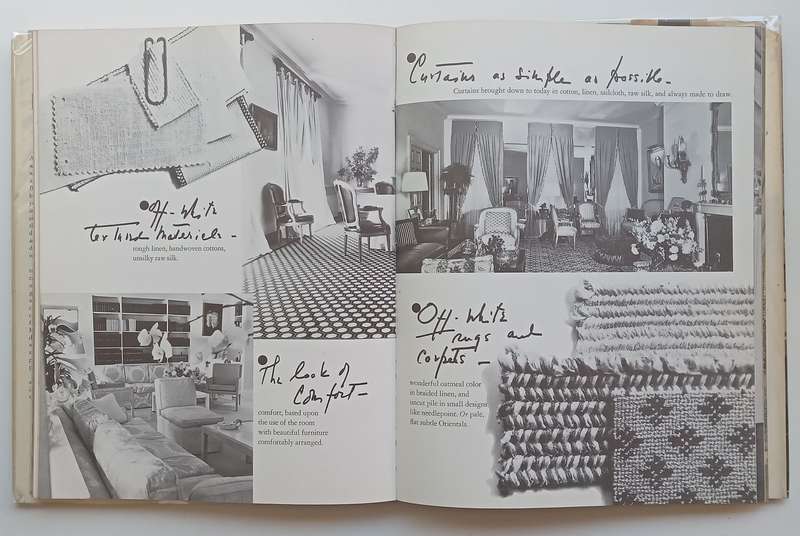 Off-White
textured materials-
rough linen, handwoven cottons,
unsilky raw silk.
The look of
Comfort-
comfort, based upon
the use of the room
with beautiful furniture
comfortably arranged.
Curtains as simple as possible-
Curtains brought down to today in cotton, linen, sailcloth, raw silk, and always made to draw.
Off-White
rugs and
carpets-
wonderful oatmeal color
in braided linen, and
uncut pile in small designs
like needlepoint. Or pale,
flat subtle Orientals.